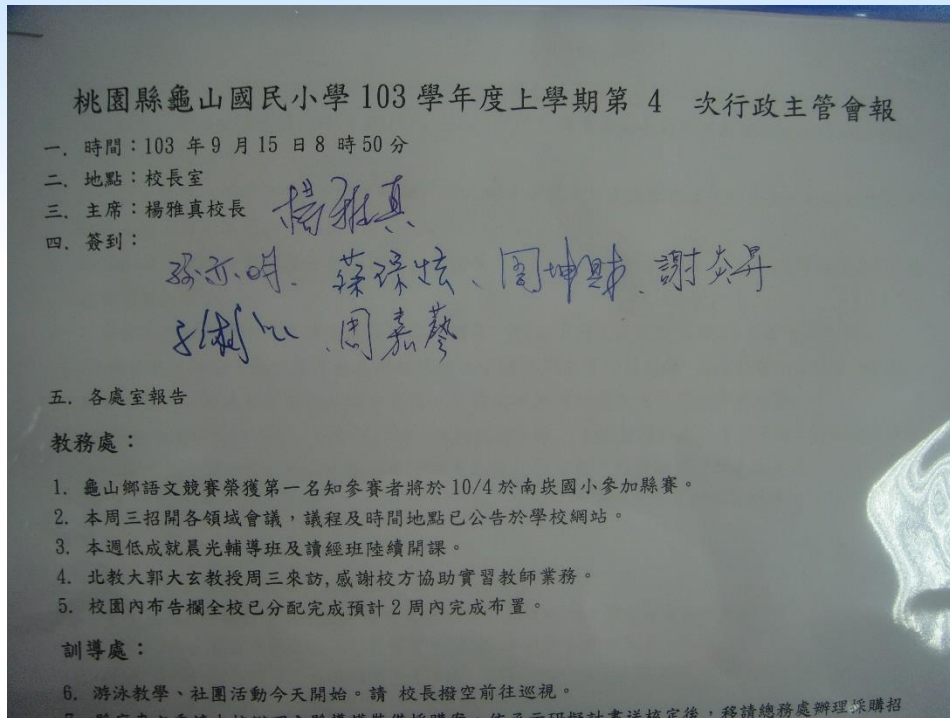 桃園縣龜山國民小學 103 學年度上學期第 4 次行政主管會報
一. 時間：103 年 9 月 15 日 8 時 50 分
二. 地點：校長室
三. 主席：楊雅真校長 楊雅真
四. 簽到：
周坤財、謝炎昇
周嘉藝
五. 各處室報告
教務處：
1. 龜山鄉語文競賽榮獲第一名知參賽者將於 10/4 於南崁國小參加縣賽。
2. 本周三招開各領域會議，議程及時間地點已公告於學校網站。
3. 本週低成就晨光輔導班及讀經班陸續開課。
4. 北教大郭大玄教授周三來訪,感謝校方協助實習教師業務。
5. 校園內布告欄全校已分配完成預計 2 周內完成布置。
訓導處：
6. 游泳教學、社團活動今天開始。請 校長撥空前往巡視。
後，移請總務處辦理採購招